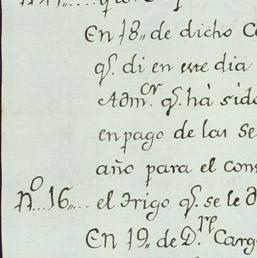 En 18,, de dicho
qᵉ. di en este dia
Admᵒʳ. qᵉ. há sido
en pago de las
año para el
nº 16,,... el trigo qᵉ. se le
En 19,, de D.ʳᵉ